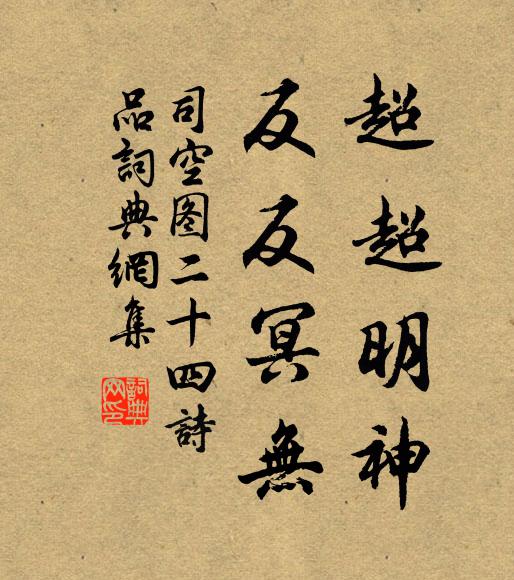 超超明神
反反冥無
司空图二十四詩
品詞典網集
詞典网印